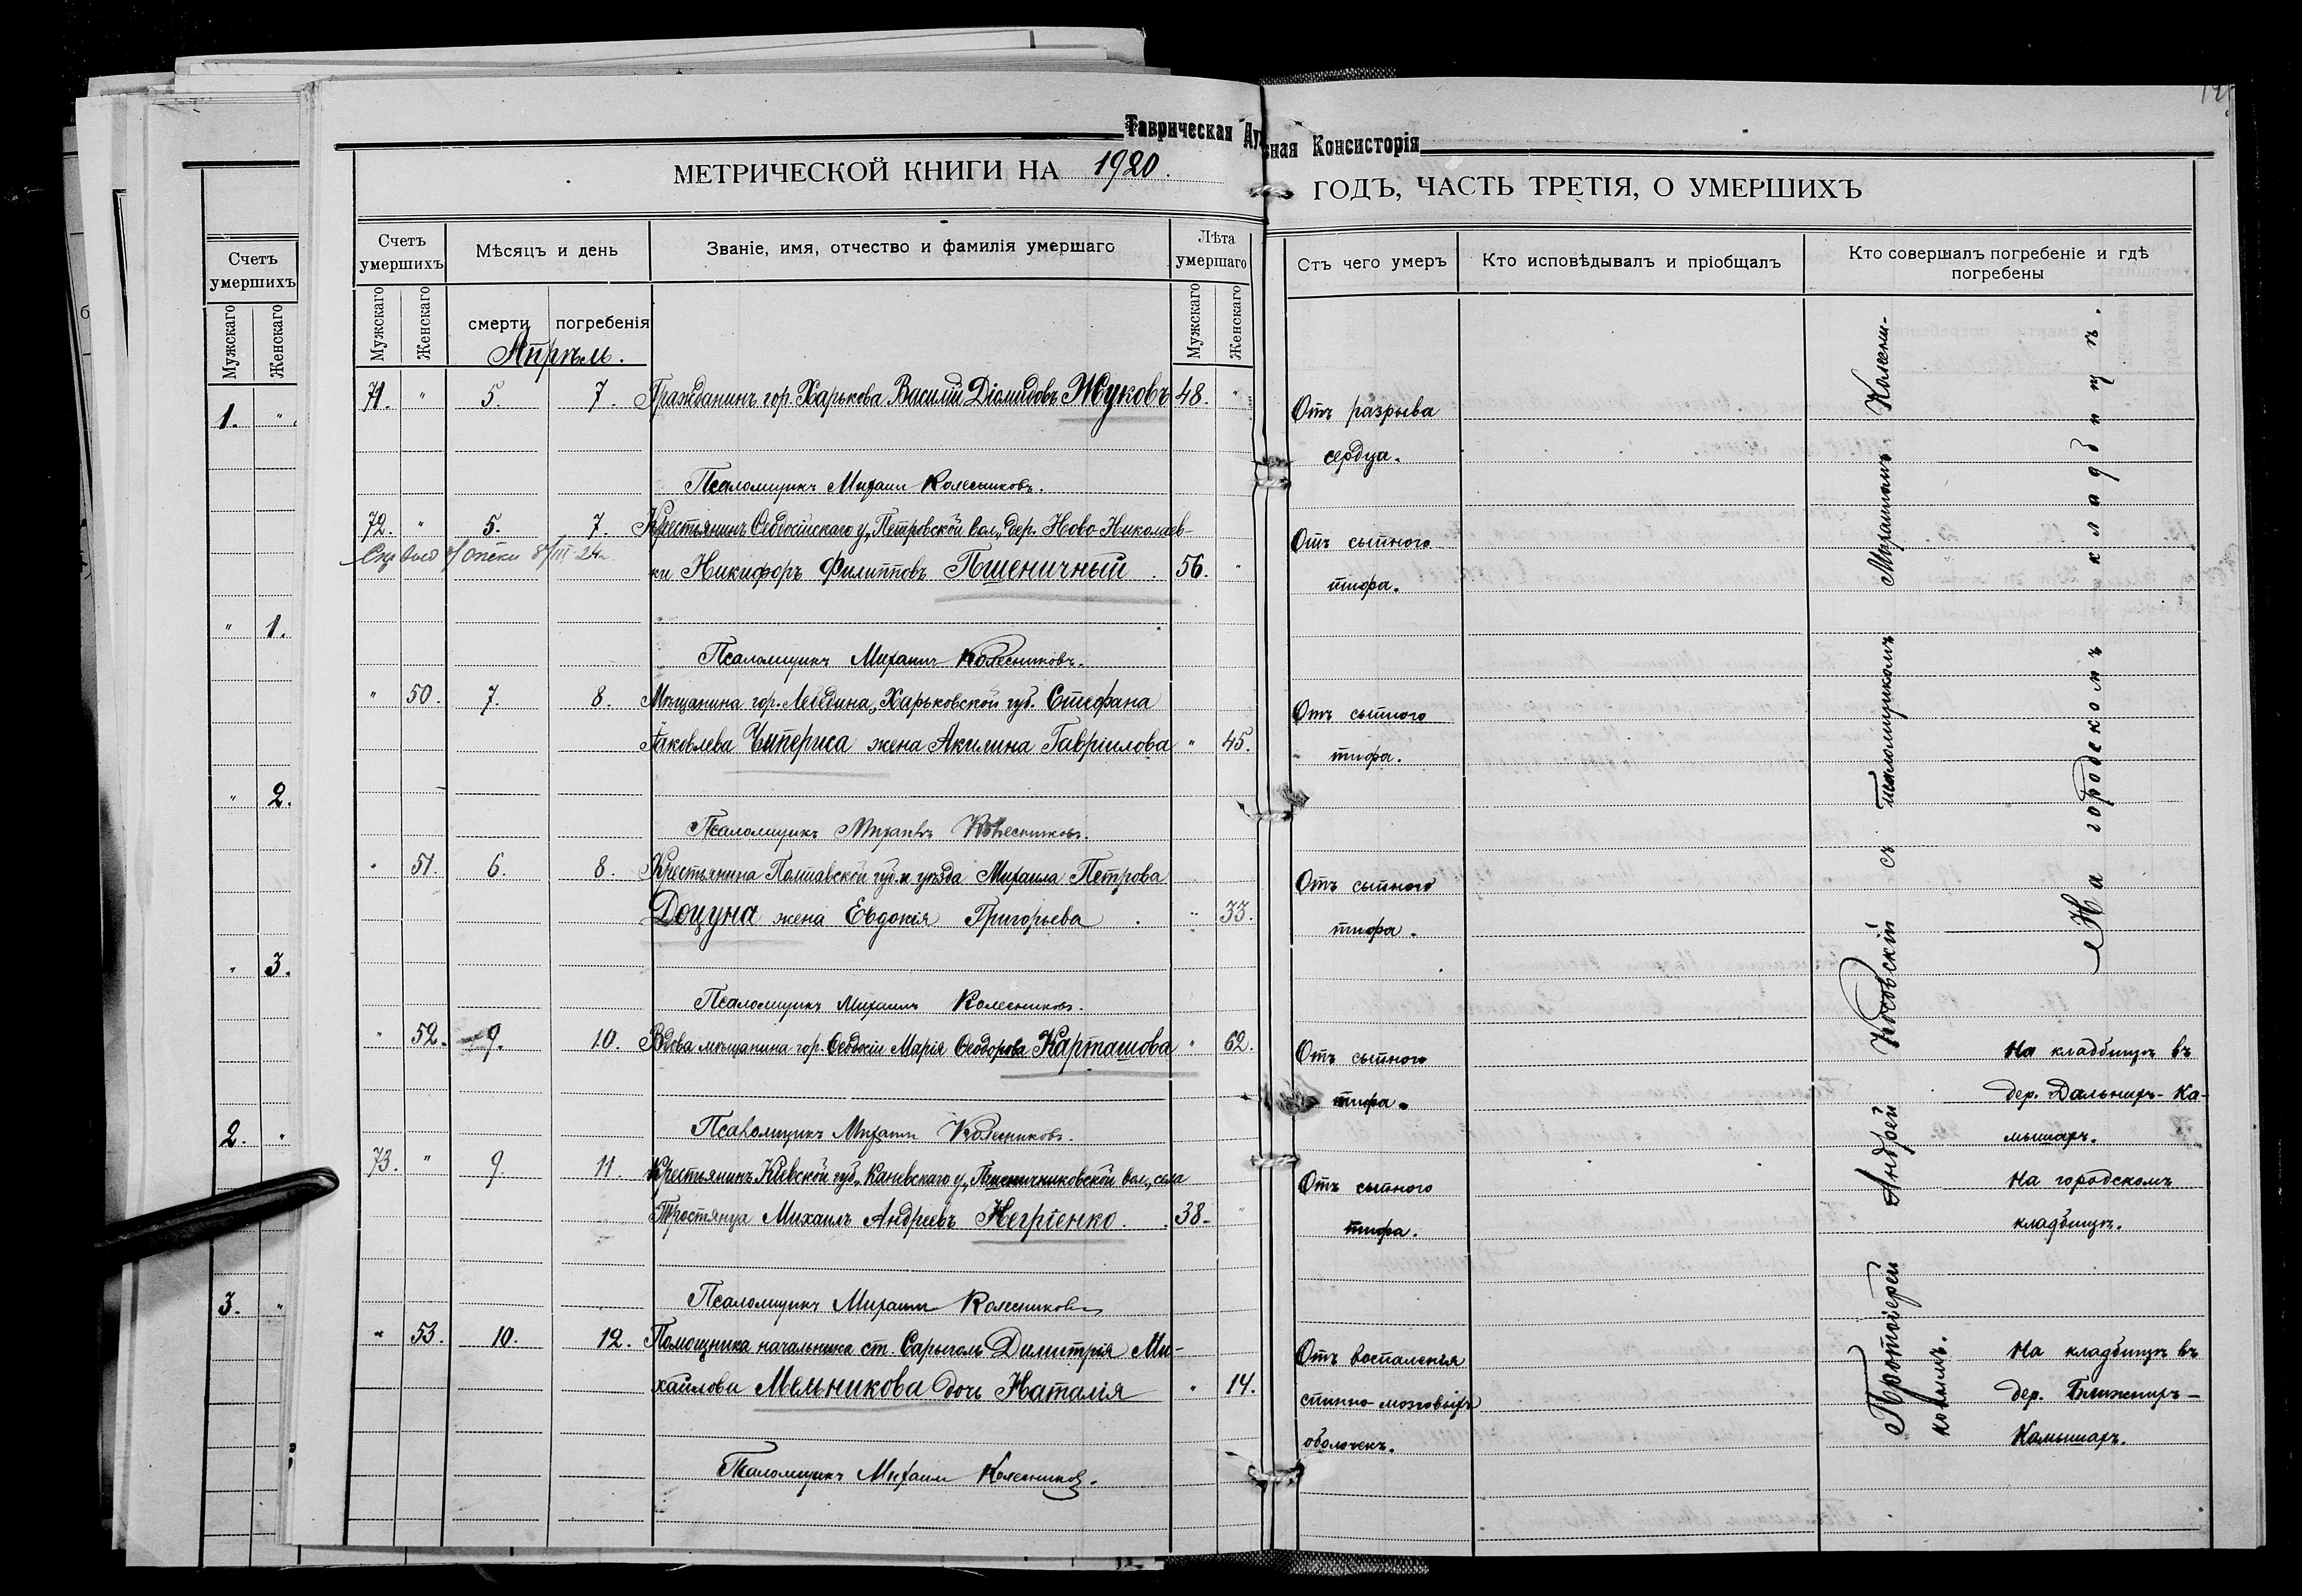 Таврическая Духовная Консисторія
МЕТРИЧЕСКОЙ КНИГИ НА 1920. ГОДЪ, ЧАСТЬ ТРЕТІЯ, О УМЕРШИХЪ
Счетъ умершихъ
Мужскаго
Женскаго
1. "
" 1.
" 2.
" 3.
2. "
3. "
Счетъ умершихъ
Мужскаго
Женскаго
Мѣсяцъ и день
смерти
погребенія
Званіе, имя, отчество и фамилія умершаго
Лѣта умершаго
Мужскаго
Женскаго
Стъ чего умеръ
Кто исповѣдывалъ и пріобщалъ
Кто совершалъ погребеніе и гдѣ
погребены
Апрѣль.
71. " 5. 7. Гражданинъ гор. Харькова Василій Діомидовъ Жуковъ 48. "
Отъ разрыва
сердца.
Псаломщикъ Михаил Колесниковъ.
72. " 5. 7. Крестьянинъ Ѳеодосійскаго у., Петровской вол., дер. Ново-Николаев-
ки Никифоръ Филипповъ Пшеничный. 56. "
8/III 24
Отъ сыпного
тифа.
Псаломщикъ Михаилъ Колесниковъ.
" 50. 7. 8. Мѣщанина гор. Лебедина, Харьковской губ. Стефана
Яковлева Чипериса жена Акилина Гавріилова " 45.
Отъ сыпного
тифа.
Псаломщикъ Михаилъ Колесниковъ.
" 51. 6. 8. Крестьянина Полтавской губ. и уѣзда Михаила Петрова
Доцуна жена Евдокія Григорьева. " 33.
Отъ сыпного
тифа.
Псаломщикъ Михаилъ Колесниковъ.
" 52. 9. 10. Вдова мѣщанина гор. Ѳеодосіи Марія Ѳеодорова Карташова " 62.
Отъ сыпного
тифа.
На кладбищѣ въ
дер. Дальнихъ-Ка-
мышахъ.
Псаломщикъ Михаил Колесниковъ.
73. " 9. 11. Крестьянинъ Кіевской губ., Каневскаго у., Пшеничниковской вол., села
Тростянца Михаилъ Андреевъ Негріенко. 38. "
Отъ сыпного
тифа.
На городскомъ
кладбищѣ.
Псаломщикъ Михаил Колесниковъ
" 53. 10. 12. Помощника начальника ст. Сарыголь Димитрія Ми-
хайлова Мельникова дочь Наталія " 14.
Отъ воспаленія
спинно-мозговыхъ
оболочекъ.
На кладбищѣ въ
дер. Ближнихъ-
Камышахъ.
Псаломщикъ Михаил Колесников.
Протоіерей Андрей Косовскій съ псаломщикомъ Михаиломъ Колесни-
ковымъ.
На городскомъ кладбищѣ.